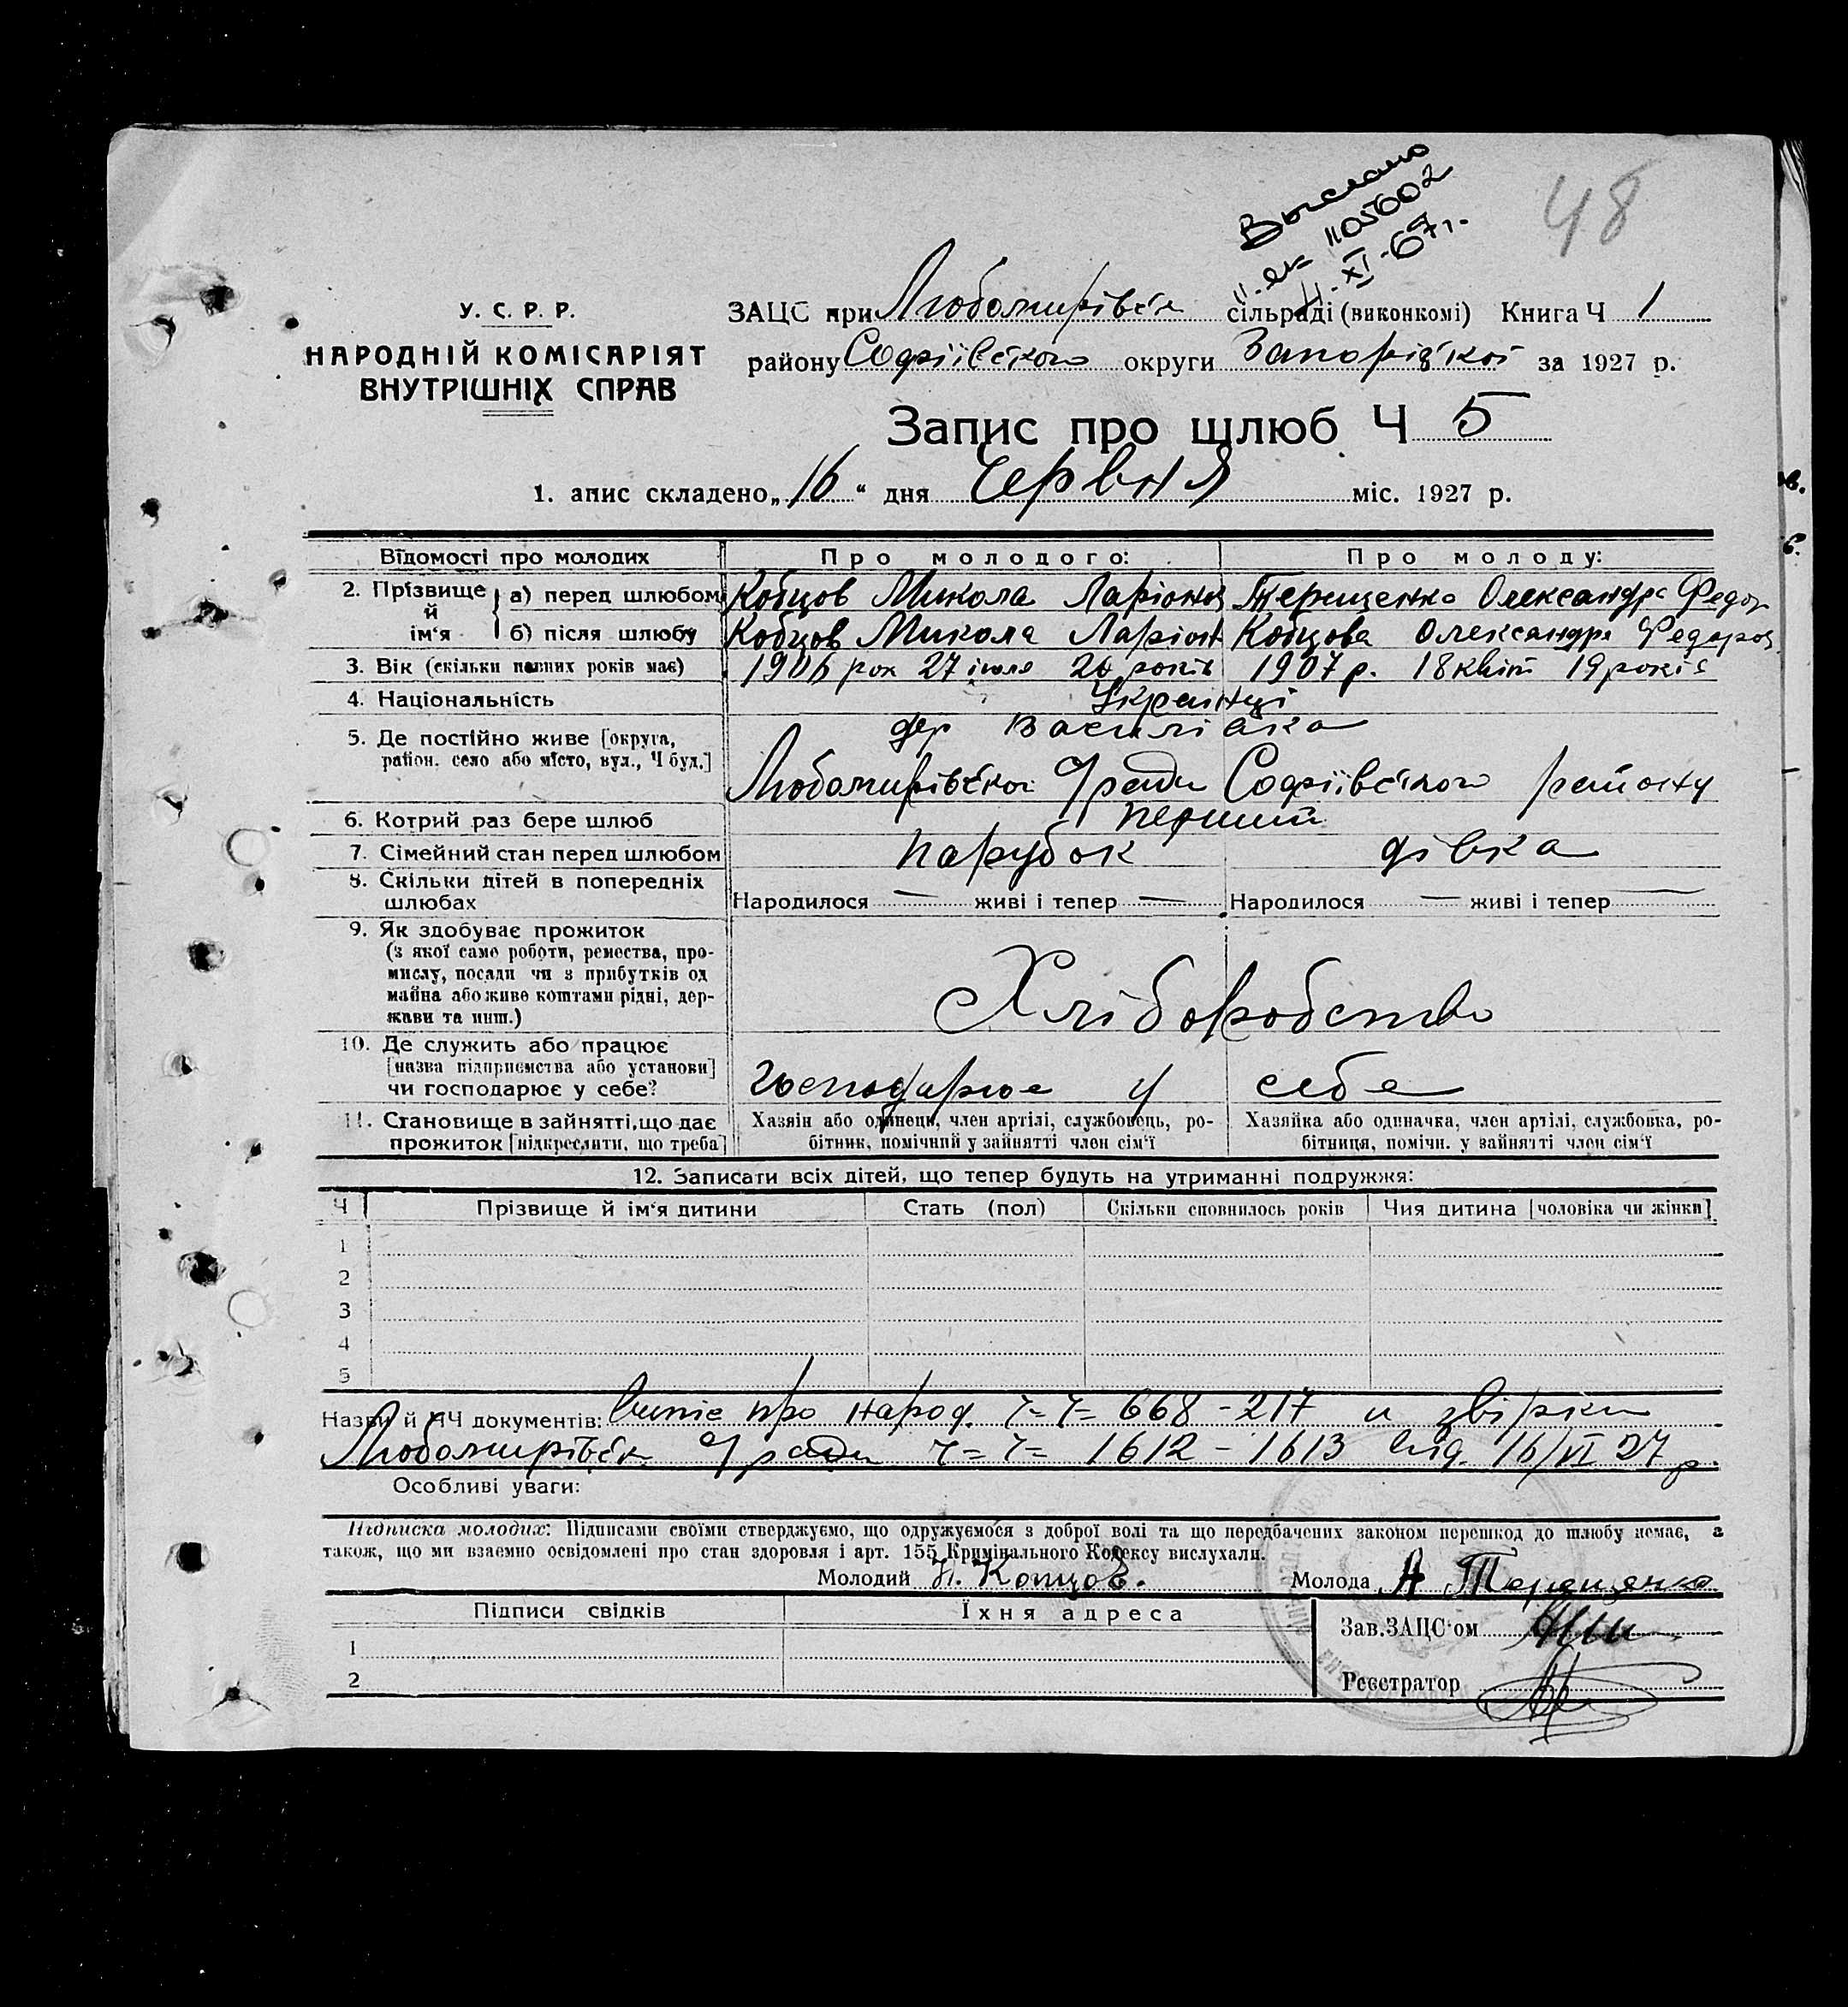 Выслано
II-ЯК 1105602
11-XI-67г.
48
У. С. Р. Р.
НАРОДНІЙ КОМІСАРІЯТ
ВНУТРІШНІХ СПРАВ
ЗАЦС при Любомирівськ сільраді (виконкомі) Книга Ч 1
району Софіївського округи Запорізької за 1927 р.
Запис про шлюб Ч 5
1. апис складено „16“ дня Червня міс. 1927 р.
Відомості про молодих Про молодого: Про молоду:
2. Прізвище й ім‘я а) перед шлюбом Кобцов Микола Ларіонів Терещенко Олександра Федор
б) після шлюбу Кобцов Микола Ларіон Кобцова Олександра Федоров
3. Вік (скільки повних років має) 1906 рок 27 іюля 20 років 1907 р. 18 квіт 19 років
4. Національність Українці
5. Де постійно живе [округа, район. село або місто, вул., Ч буд.] дер Василівка
Любомирівської С/ради Софіївського району
6. Котрий раз бере шлюб перший
7. Сімейний стан перед шлюбом парубок дівка
8. Скільки дітей в попередніх шлюбах Народилося — живі і тепер — Народилося — живі і тепер —
9. Як здобуває прожиток
(з якої саме роботи, ремества, про-
мислу, посади чи з прибутків од
майна або живе коштами рідні, дер-
жави та инш.) Хліборобство
10. Де служить або працює
[назва підприємства або установи]
чи господарює у себе? господарює у себе
11. Становище в зайнятті, що дає Хазяін або одинець, член артілі, службовець, ро- Хазяйка або одиначка, член артілі, службовка, ро-
прожиток [підкреслити, що треба] бітник, помічний у зайнятті член сім‘ї бітниця, помічн. у зайнятті член сім‘ї
12. Записати всіх дітей, що тепер будуть на утриманні подружжя:
Ч Прізвище й ім‘я дитини Стать (пол) Скільки сповнилось років Чия дитина [чоловіка чи жінки]
1
2
3
4
5
Назви й ЧЧ документів: Випис про народ. Ч=Ч= 668-217 и звірки
Любомирівськ С/ради Ч=Ч= 1612-1613 від. 16/VI 27 р.
Особливі уваги:
Підписка молодих: Підписами своїми стверджуємо, що одружуємося з доброї волі та що передбачених законом перешкод до шлюбу немає, а
також, що ми взаємно освідомлені про стан здоровля і арт. 155 Кримінального Кодексу вислухали.
Молодий Н. Копцов. Молода А Терещенко
Підписи свідків Їхня адреса Зав. ЗАЦС‘ом
1
2 Реєстратор